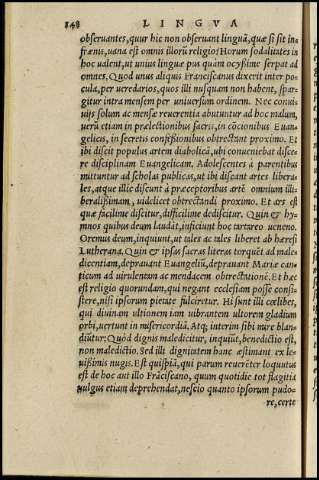 148 LINGVA
obseruantes, quur hic non obseruant linguã, quæ si sit in-
frænis, uana est omnis illorũ religio? Horum sodalitates in
hoc ualent, ut unius linguæ pus quàm ocyssime serpat ad
omnes. Quod unus aliquis Franciscanus dixerit inter po-
cula, per ueredarios, quos illi nusquam non habent, spar-
gitur intra mensem per uniuersum ordinem. Nec conui-
uijs solum ac mensæ reuerentia abutuntur ad hoc malum,
uerũ etiam in prælectionibus sacris, in cõcionibus Euan-
gelicis, in secretis confessionibus obtrectant proximo. Et
ibi discit populus artem diabolicã, ubi conueniebat disce-
re disciplinam Euangelicam. Adolescentes à parentibus
mittuntur ad scholas publicas, ut ibi discant artes libera-
les, atque illic discunt à præceptoribus artẽ omnium illi-
beralissimam, uidelicet obtrectandi proximo. Et ars est
quæ facilime discitur, difficilime dediscitur. Quin & hy-
mnos quibus deum laudãt, inficiunt hoc tartareo ueneno.
Oremus deum, inquiunt, ut tales ac tales liberet ab hæresi
Lutherana. Quin & ipsas sacras literas torquẽt ad male-
dicentiam, deprauant Euangeliũ, deprauant Mariæ can-
ticum ad uirulentam ac mendacem obtrectationẽ. Et hæc
est religio quorundam, qui negant ecclesiam posse consi-
stere, nisi ipsorum pietate fulciretur. Hi sunt illi cœlibes,
qui diuinam ultionem iam uibrantem ultorem gladium
orbi, uertunt in misericordiã. Atq; interim sibi mire blan-
diũtur: Quòd dignis maledicitur, inquiũt, benedictio est,
non maledictio. Sed illi dignitatem hanc æstimant ex le-
uissimis nugis. Est quispiã, qui parum reuerẽter loquutus
est de hoc aut illo Frãciscano, quum quotidie tot flagitia
uulgus etiam deprehendat, nescio quanto ipsorum pudo-
re, certe